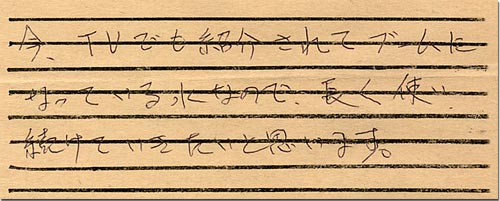 今、TVでも紹介されてブームに
なっているみたいなので、長く使い
続けていきたいと思います。